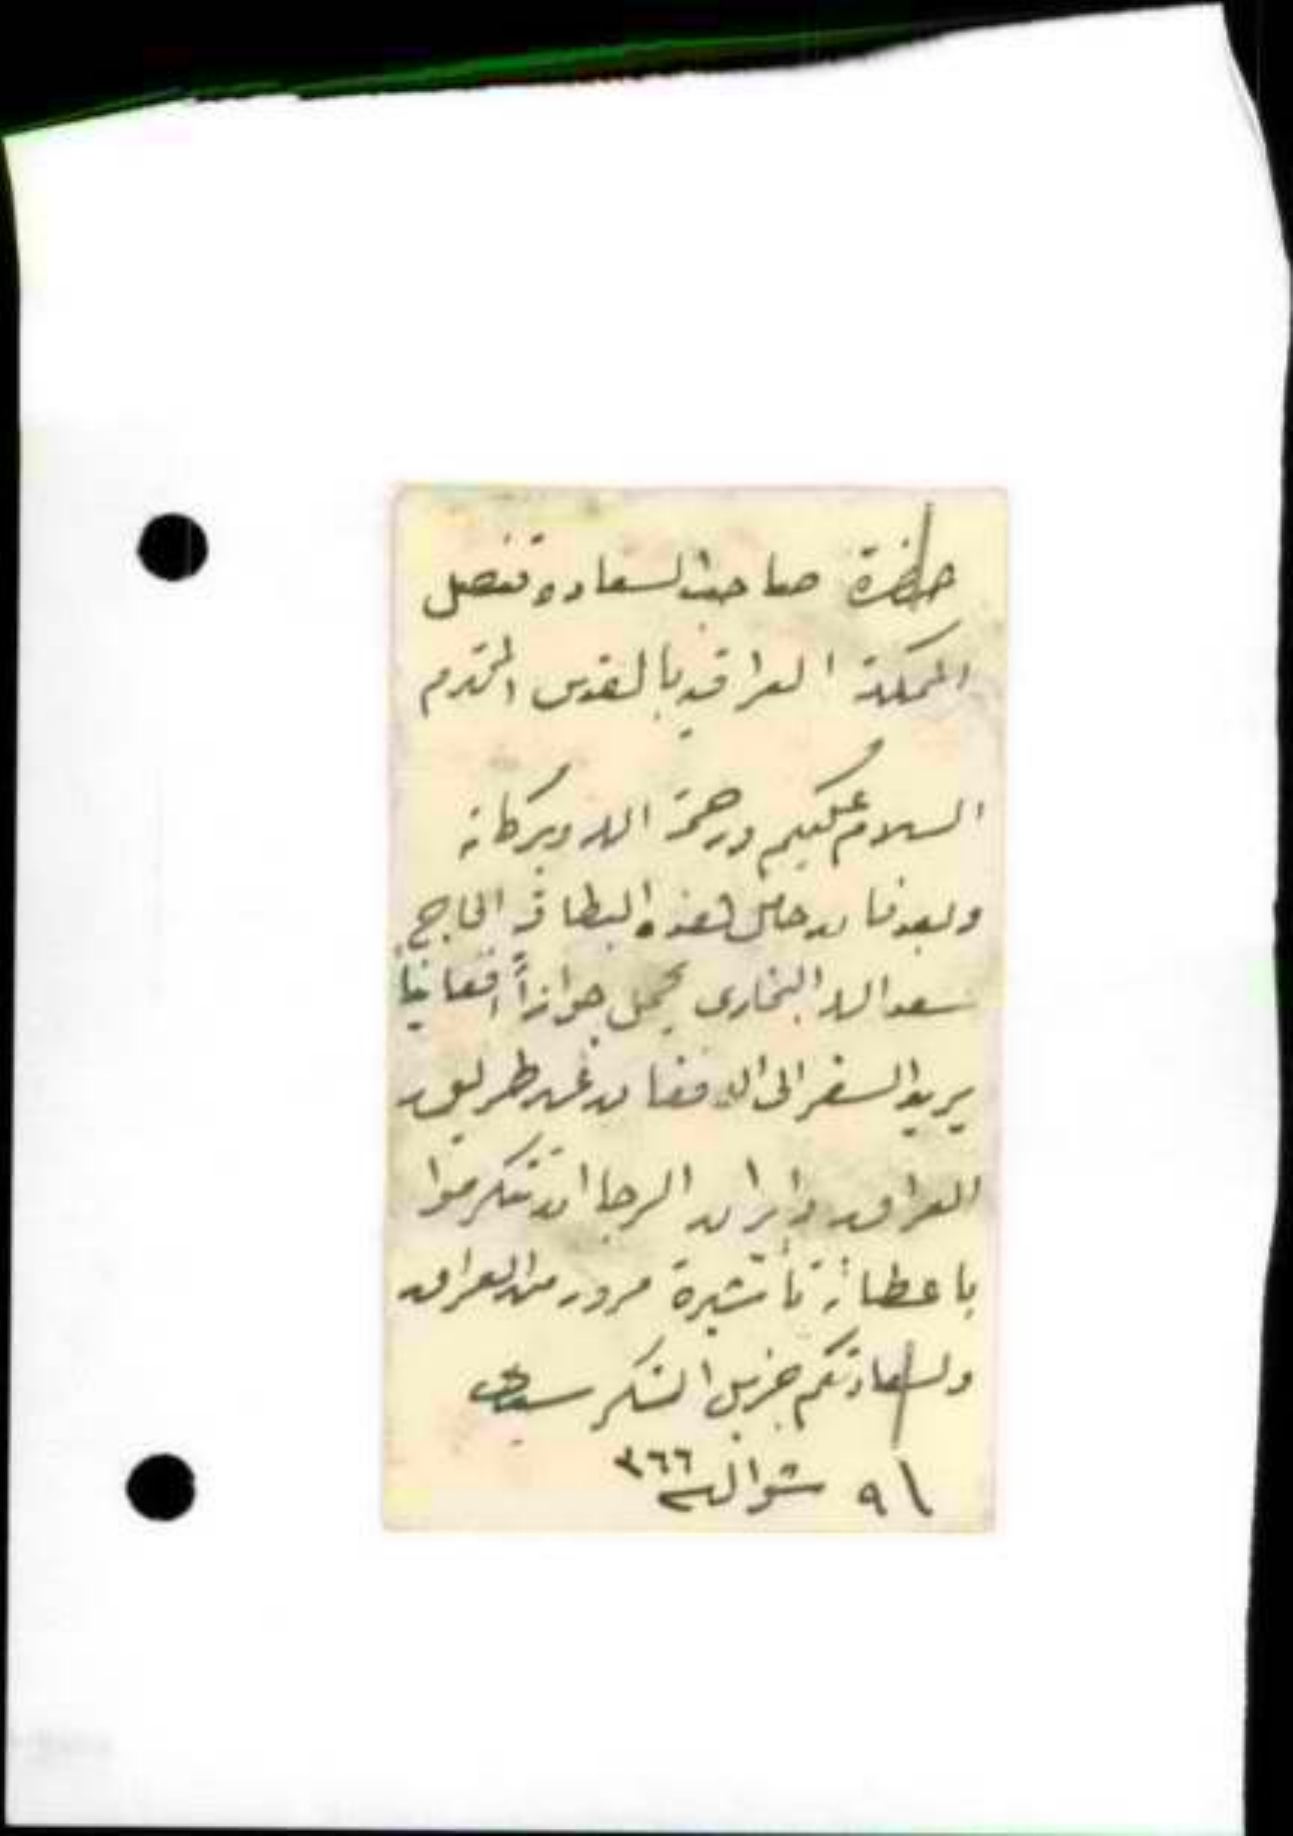 حضرة صاحب السعادة قنصل
المملكة العراقيه بالقدس المحترم
السلام عليكم ورحمة الله وبركاته
وبعد فان حامل هذه البطاقة الحاج
سعد الله البخارى يحمل جوازاً افغانياً
يريد السفر الى الافغان عن طريق
العراق وايران الرجا ان تتكرموا
باعطائه تأشيرة مرور من العراق
ولسعادتكم جزيل الشكر
٩ شوال سنة ٣٦٦